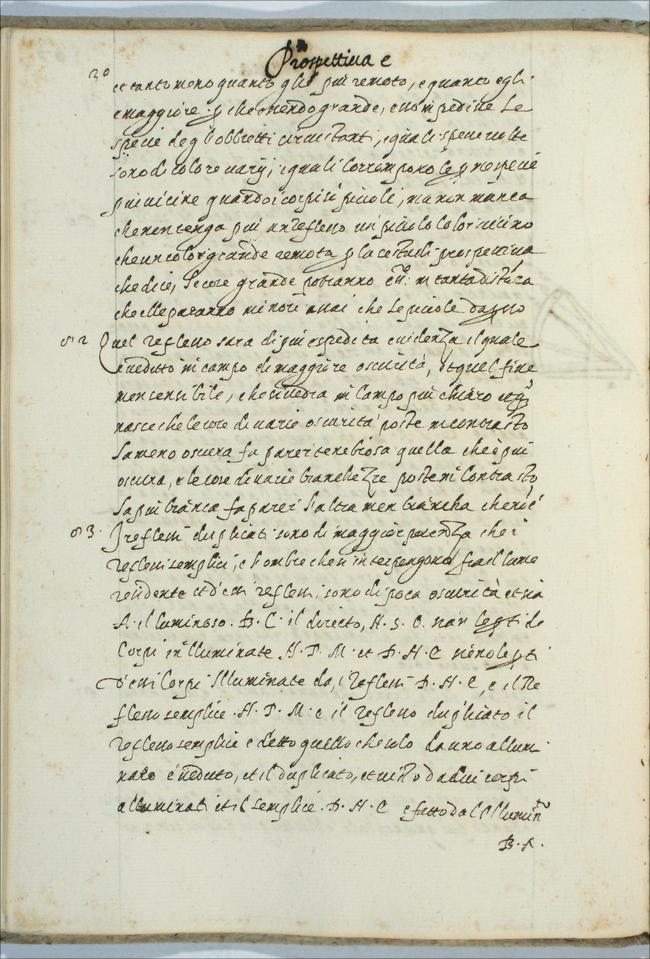 Prospettiva e
30
et tanto meno quanto gli è piu remoto, e quanto egli
e maggiore p che essendo grande, e impedisce le
spetie degli obbietti circustanti, e quali spesse volte
sono di colore varij, e quali corrompono le p.e spetie
piu vicine quando i corpi so piccoli, ma non manca
che non tenga piu un reflesso un piccolo color vicino
che un color grande remoto p la
che dice, Le cose grande potranno in tanta distãza
che elle paranno minori assai che le piccole dapsso
82 Quel reflesso sara di piu espedita evidenza il quale
è veduto in campo di maggiore oscurità, et quel fia
men sensibile, che si vedra in campo piu chiaro
nasce che le cose di varie oscurità poste in contrasto
la meno oscura fa parer tenebrosa quella che è piu
oscura, e le cose di varie bianchezze poste in contrasto
la piu bianca fa parer l'altra men biancha che nõ è
83. I reflessi duplicati sono di maggior potenza che i
reflessi semplici, e l'ombre che s'interpongono fra il lume
 et d'essi reflessi, sono di poca oscurità et sia
A. il luminoso. B. C. il diretto, A. S. O. le pti de
Corpi illuminate A. P. M. et D. H. C sieno le pti
d'essi Corpi Illuminate da, i reflessi D. H. C, e il Re
flesso semplice. A. P. M. e il reflesso duplicato il
reflesso semplice e detto quello che solo da uno allumi
nato è veduto, et il duplicato, et visto da dui corpi
alluminati et il semplice. D. H. C e fatto dal Illumin.to
B. A.